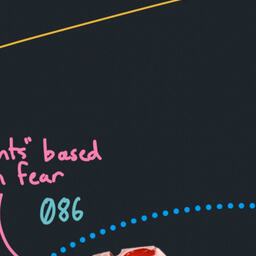 nts" based
fear
086